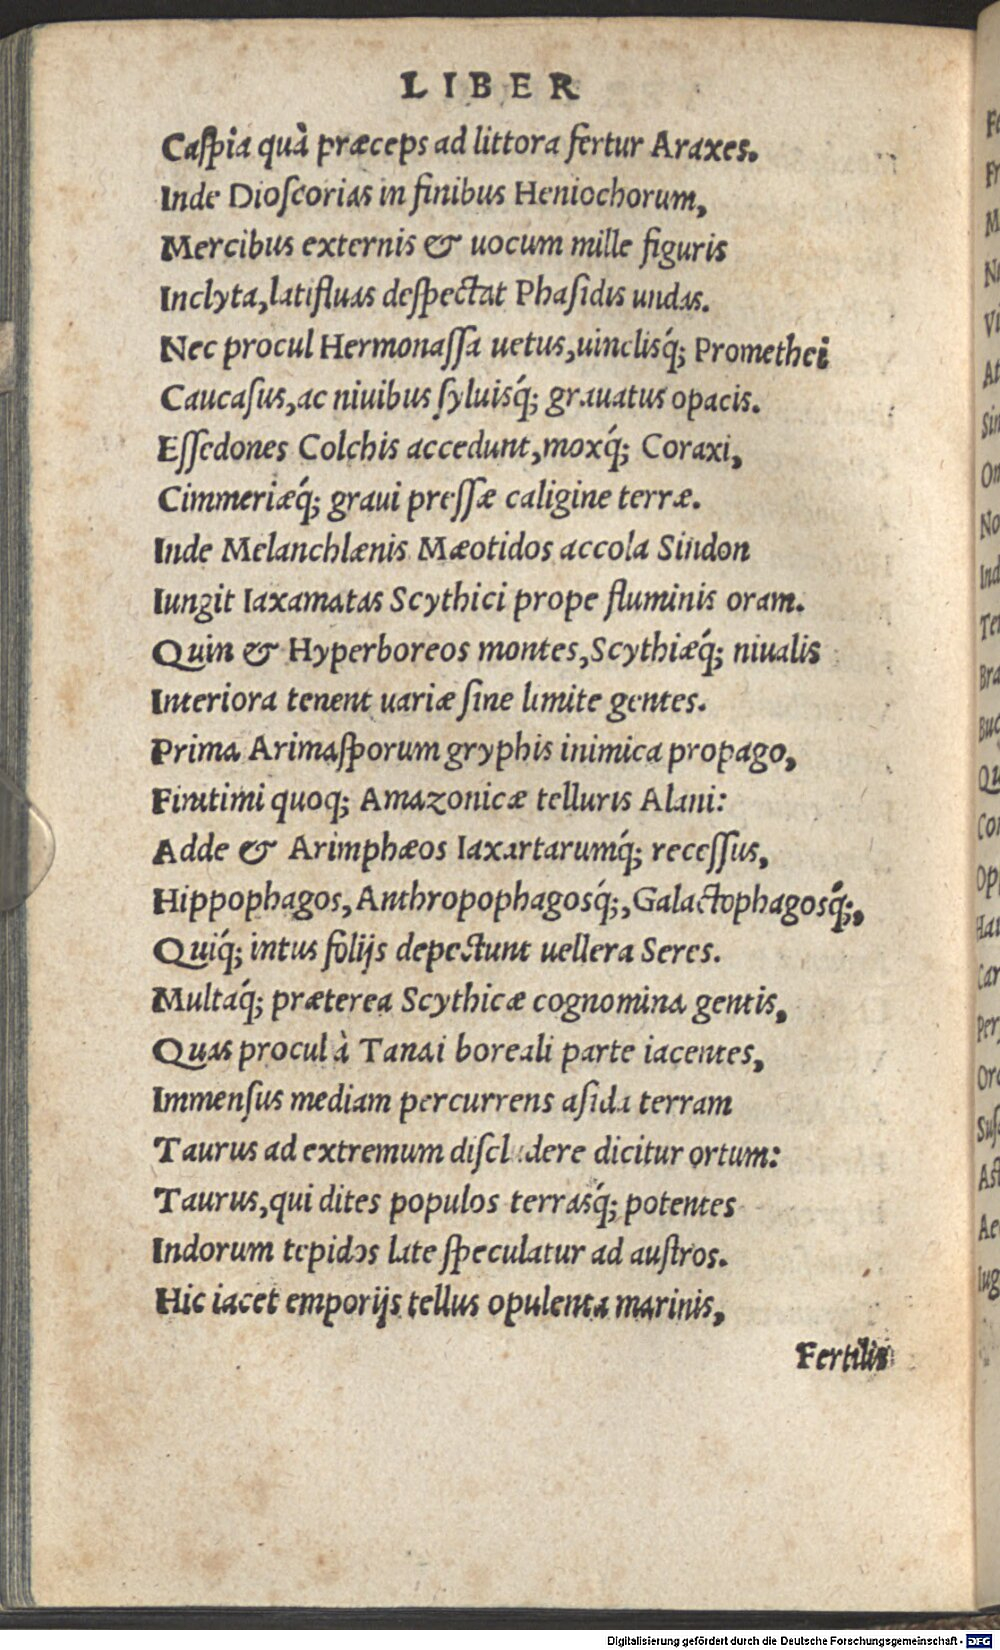 LIBER
Caſpia quà præceps ad littora fertur Araxes.
Inde Dioſcorias in finibus Heniochorum,
Mercibus externis & uocum mille figuris
Inclyta, latifluas deſpectat Phaſidis undas.
Nec procul Hermonaſſa uetus, uinclisq́; Promethei
Caucaſus, ac niuibus ſyluisq́; grauatus opacis.
Eſſedones Colchis accedunt, moxq́; Coraxi,
Cimmeriæq́; graui preſſæ caligine terræ.
Inde Melanchlænis Mæotidos accola Sindon
Iungit Iaxamatas Scythici prope fluminis oram.
Quin & Hyperboreos montes, Scythiæq́; niualis
Interiora tenent uariæ ſine limite gentes.
Prima Arimaſporum gryphis inimica propago,
Finitimi quoq; Amazonicæ telluris Alani:
Adde & Arimphæos Iaxartarumq́; receſſus,
Hippophagos, Anthropophagosq́;, Galactophagosq́;,
Quiq́; intus folijs depectunt uellera Seres.
Multaq́; præterea Scythicæ cognomina gentis,
Quas procul à Tanai boreali parte iacentes,
Immenſus mediam percurrens aſida terram
Taurus ad extremum diſcludere dicitur ortum:
Taurus, qui dites populos terrasq́; potentes
Indorum tepidos late ſpeculatur ad auſtros.
Hic iacet emporijs tellus opulenta marinis,
Fertilis
Digitalisierung gefördert durch die Deutsche Forschungsgemeinschaft - DFG